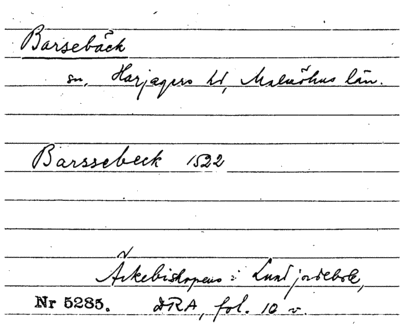 Barsebäck
sn, Harjagers hd, Malmöhus län.
Barssebeck 1522
Ärkebiskopens i Lund jordebok,
Nr 5285. DRA, fol. 10 v.